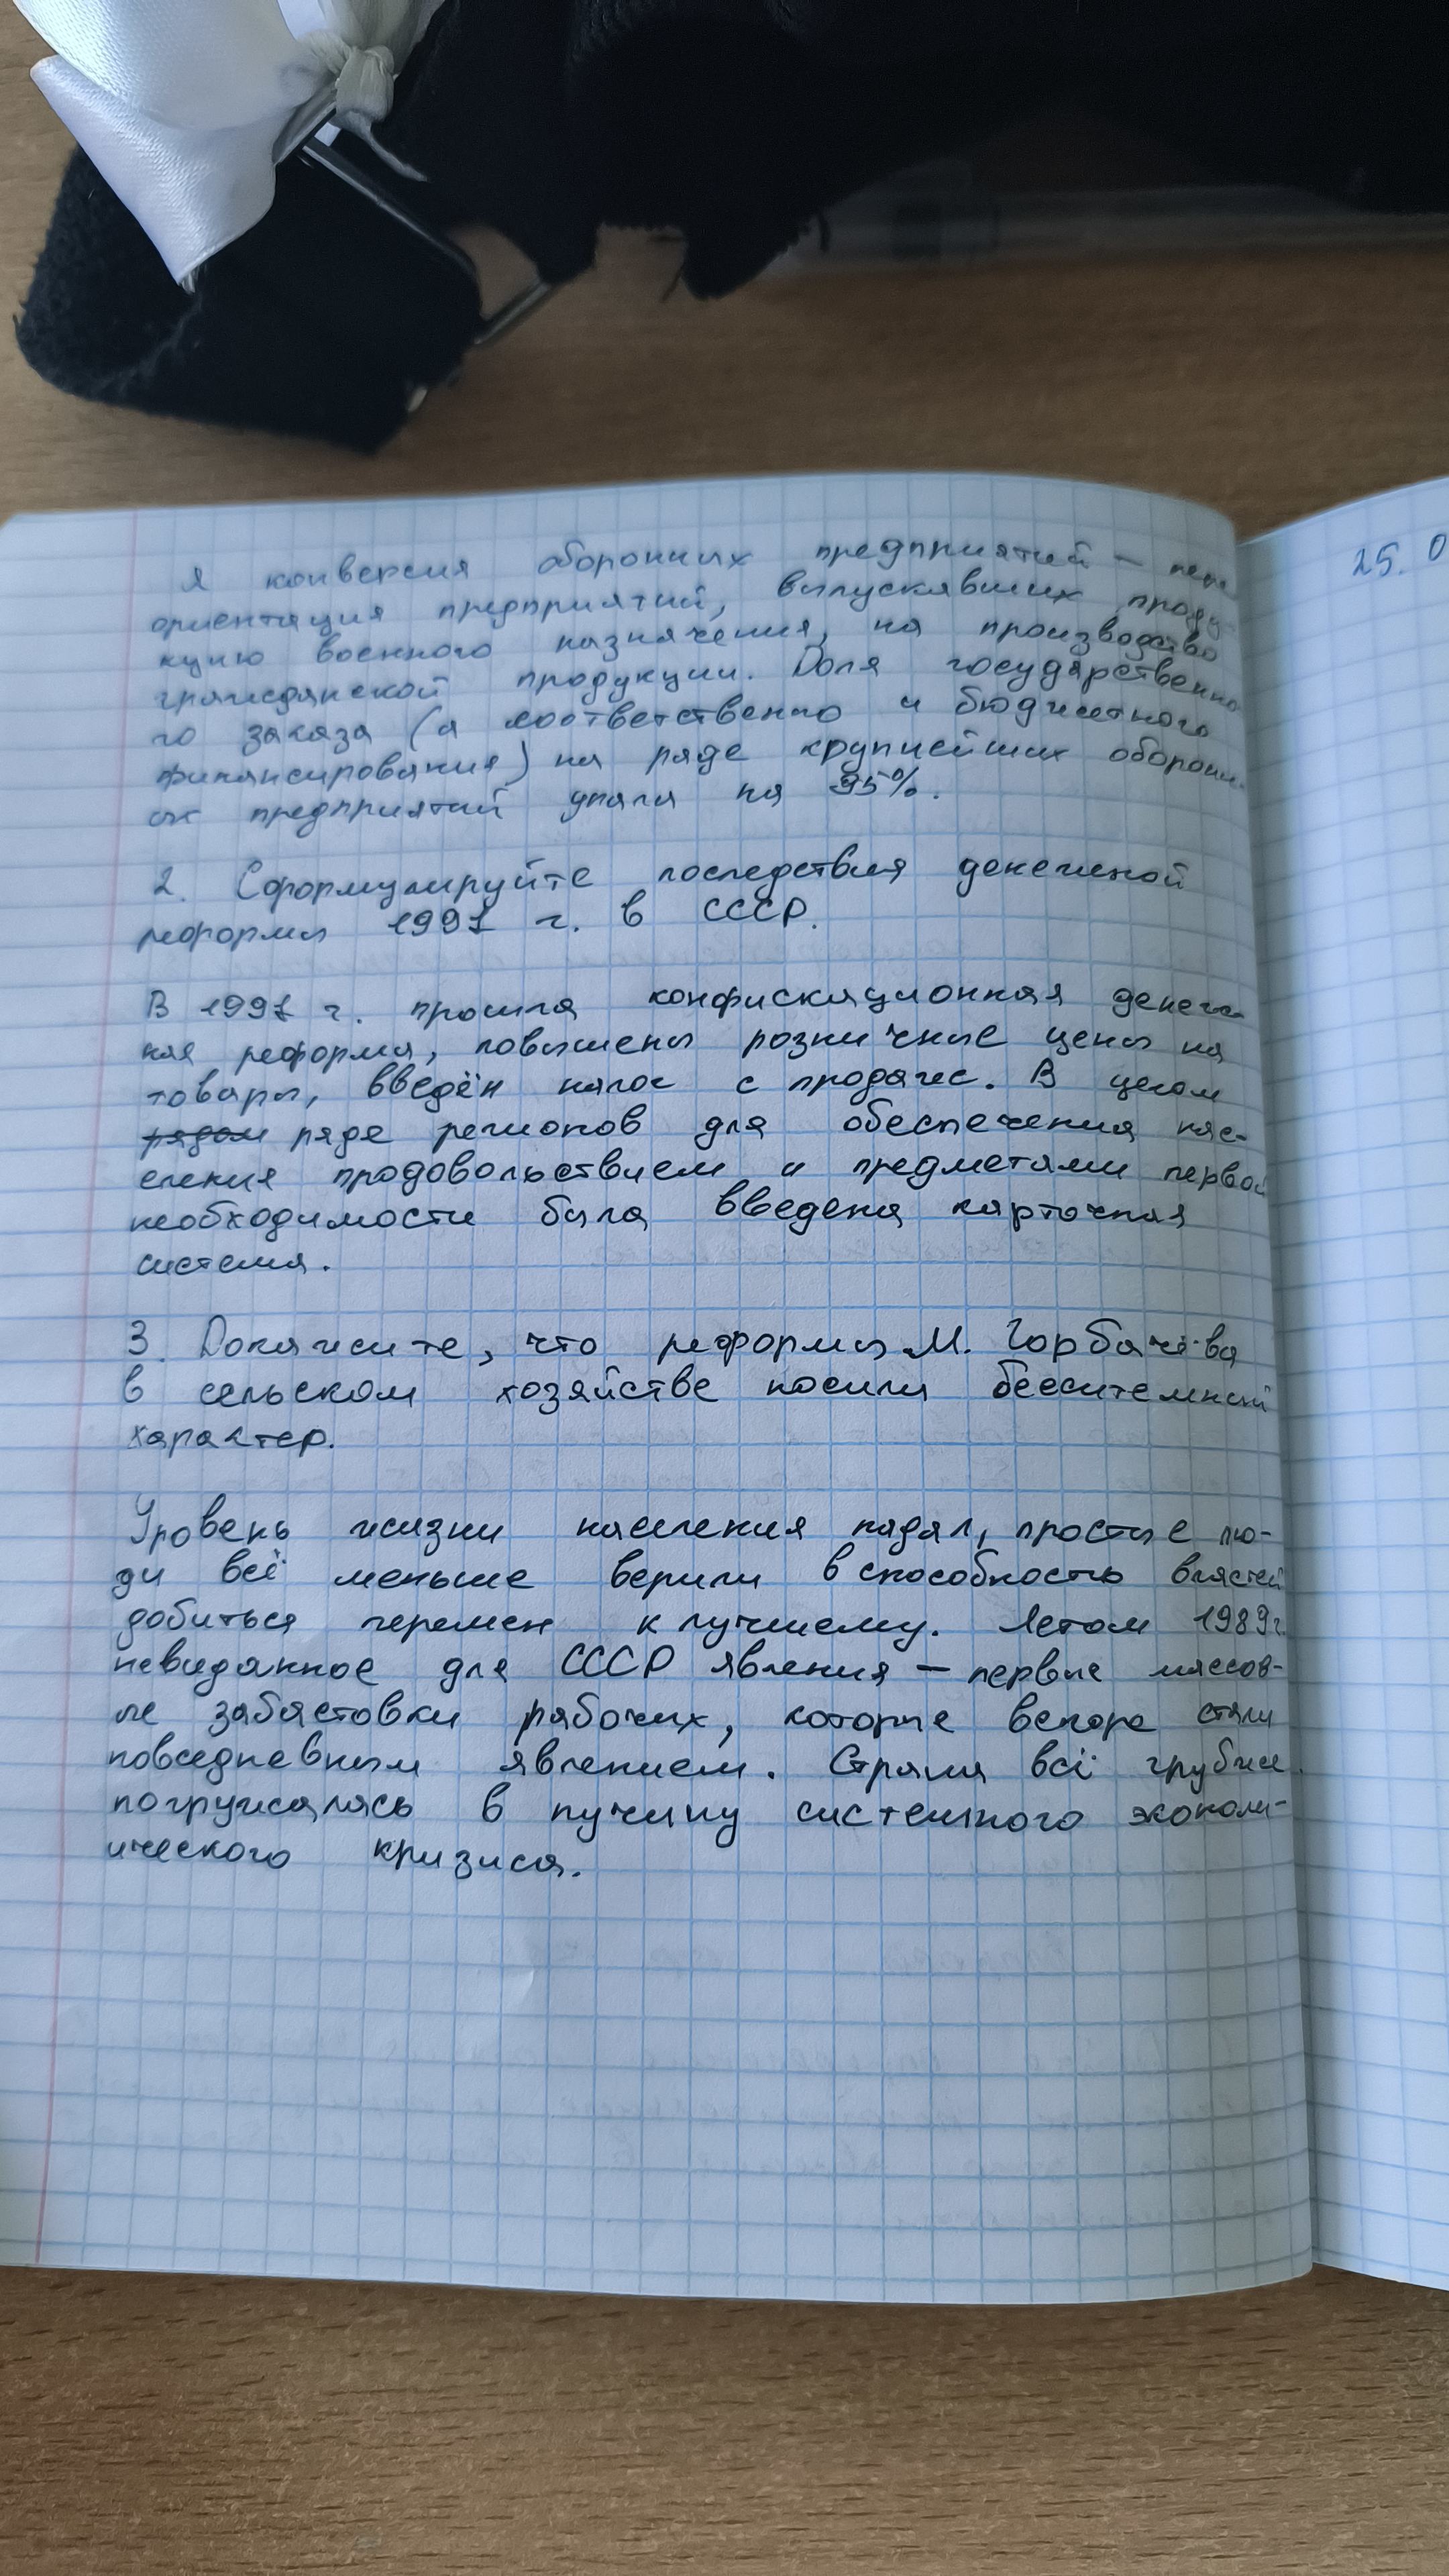 я конверсия оборонных предприятий – пере
ориентация предприятий, выпускавших проду
кцию военного назначения, на производство
гражданской продукции. Доля государственно
го заказа (а соответственно и бюджетного
финансирования) на ряде крупнейших оборонн
ых предприятий упала на 95%.
2. Сформулируйте последствия денежной
реформы 1991 г. в СССР.
В 1991 г. прошла конфискационная денеж-
ная реформа, повышены розничные цены на
товары, введён налог с продаж. В целом
рядом ряде регионов для обеспечения нас-
еления продовольствием и предметами первой
необходимости была введена карточная
система.
3. Докажите, что реформы М. Горбачёва
в сельском хозяйстве носили бесситемный
характер.
Уровень жизни населения падал, простые лю-
ди всё меньше верили в способность властей
добиться перемен к лучшему. Летом 1989г.
невиданное для СССР явления – первые массов-
ые забастовки рабочих, которые вскоре стали
повседневным явлением. Страна всё глубже
погружалась в пучину системного эконом-
ического кризиса.
25. 0